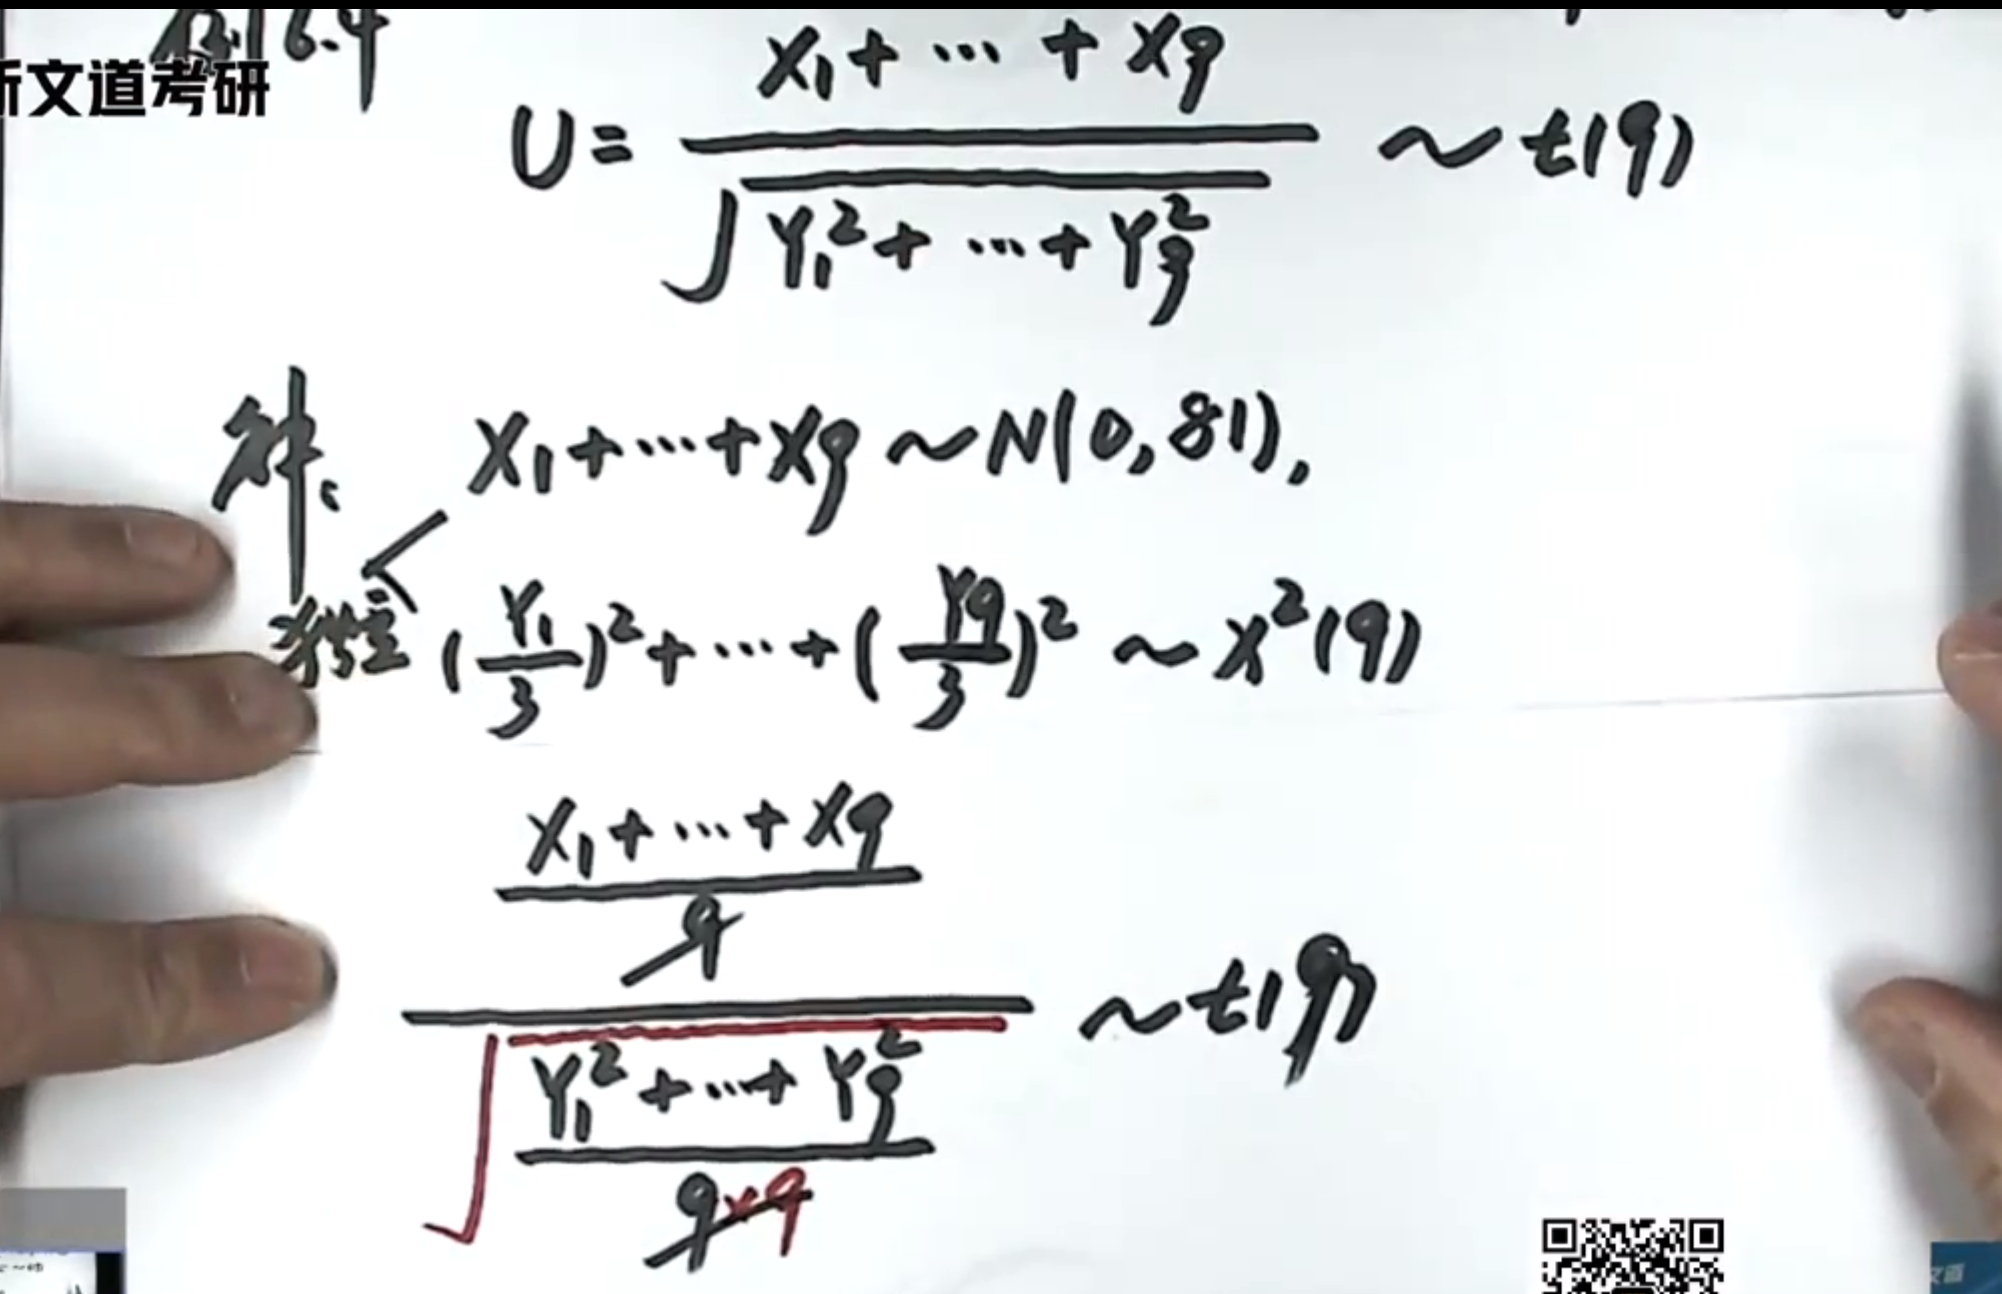 例6.4
新文道考研
U = (X₁ + ⋯ + X₉) / √(Y₁² + ⋯ + Y₉²) ~ t(9)
解、 X₁ + ⋯ + X₉ ~ N(0, 81),
独立 (Y₁/3)² + ⋯ + (Y₉/3)² ~ χ²(9)
((X₁ + ⋯ + X₉) / 9) / √((Y₁² + ⋯ + Y₉²) / (9×9)) ~ t(9)
文道